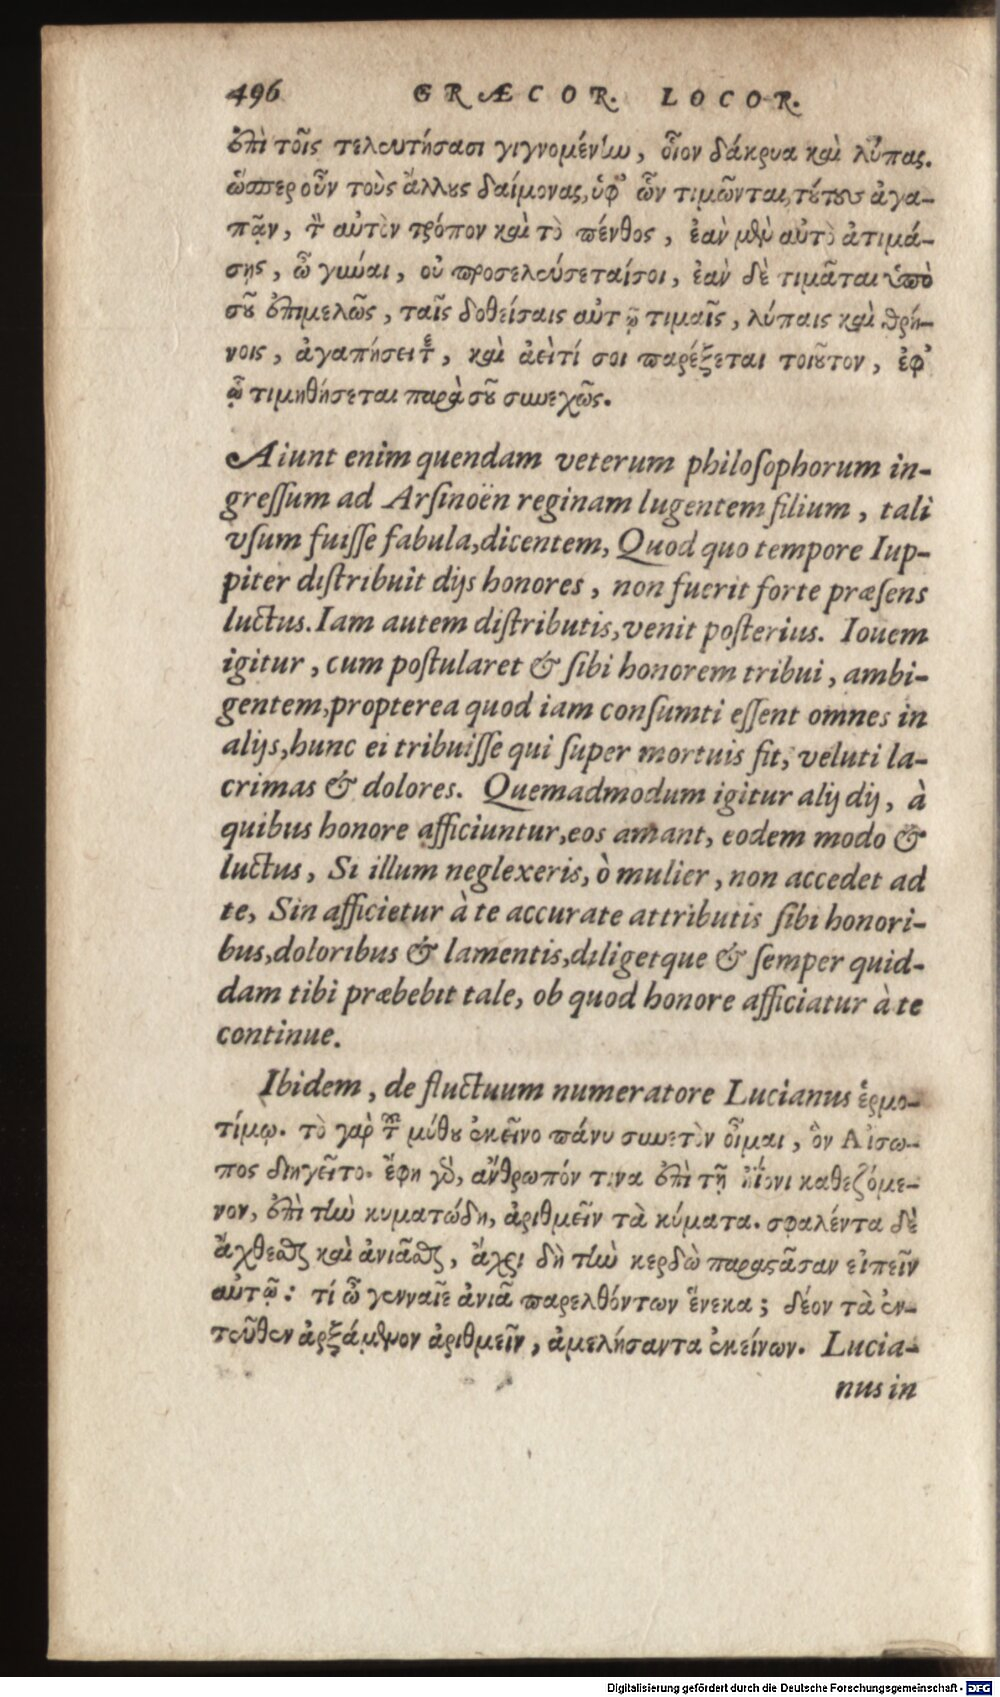 496 GRÆCOR. LOCOR.
ἐπὶ τοῖς τελευτήσασι γιγνομένην, οἷον δάκρυα καὶ λύπας.
ὥσπερ οὖν τοὺς ἄλλους δαίμονας, ὑφ᾽ ὧν τιμῶνται, τούτους ἀγα-
πᾷν, τὸν αὐτὸν τρόπον καὶ τὸ πένθος, ἐὰν μὲν αὐτὸ ἀτιμά-
σῃς, ὦ γύναι, οὐ προσελεύσεταί σοι, ἐὰν δὲ τιμᾶται ὑπὸ
σοῦ ἐπιμελῶς, ταῖς δοθείσαις αὐτῷ τιμαῖς, λύπαις καὶ θρή-
νοις, ἀγαπήσει σε, καὶ ἀεὶ τί σοι παρέξεται τοιοῦτον, ἐφ᾽
ᾧ τιμηθήσεται παρὰ σοῦ συνεχῶς.
Aiunt enim quendam veterum philosophorum in-
gressum ad Arsinoën reginam lugentem filium, tali
vsum fuisse fabula, dicentem, Quod quo tempore Iup-
piter distribuit dijs honores, non fuerit forte præsens
luctus. Iam autem distributis, venit posterius. Iouem
igitur, cum postularet & sibi honorem tribui, ambi-
gentem, propterea quod iam consumti essent omnes in
alijs, hunc ei tribuisse qui super mortuis fit, veluti la-
crimas & dolores. Quemadmodum igitur alij dij, à
quibus honore afficiuntur, eos amant, eodem modo &
luctus, Si illum neglexeris, ò mulier, non accedet ad
te, Sin afficietur à te accurate attributis sibi honori-
bus, doloribus & lamentis, diligetque & semper quid-
dam tibi præbebit tale, ob quod honore afficiatur à te
continue.
Ibidem, de fluctuum numeratore Lucianus ἑρμο-
τίμῳ. τὸ γὰρ τοῦ μύθου ἐκεῖνο πάνυ συνετὸν οἶμαι, ὃν Αἴσω-
πος διηγεῖτο. ἔφη γὰρ, ἄνθρωπόν τινα ἐπὶ τῇ ἠϊόνι καθεζόμε-
νον, ἐπὶ τὴν κυματώδη, ἀριθμεῖν τὰ κύματα. σφαλέντα δὲ
ἄχθεσθαι καὶ ἀνιᾶσθαι, ἄχρι δὴ τὴν κερδὼ παραστᾶσαν εἰπεῖν
αὐτῷ: τί ὦ γενναῖε ἀνιᾷ παρελθόντων ἕνεκα; δέον τὰ ἐν-
τεῦθεν ἀρξάμενον ἀριθμεῖν, ἀμελήσαντα ἐκείνων. Lucia-
nus in
Digitalisierung gefördert durch die Deutsche Forschungsgemeinschaft - DFG